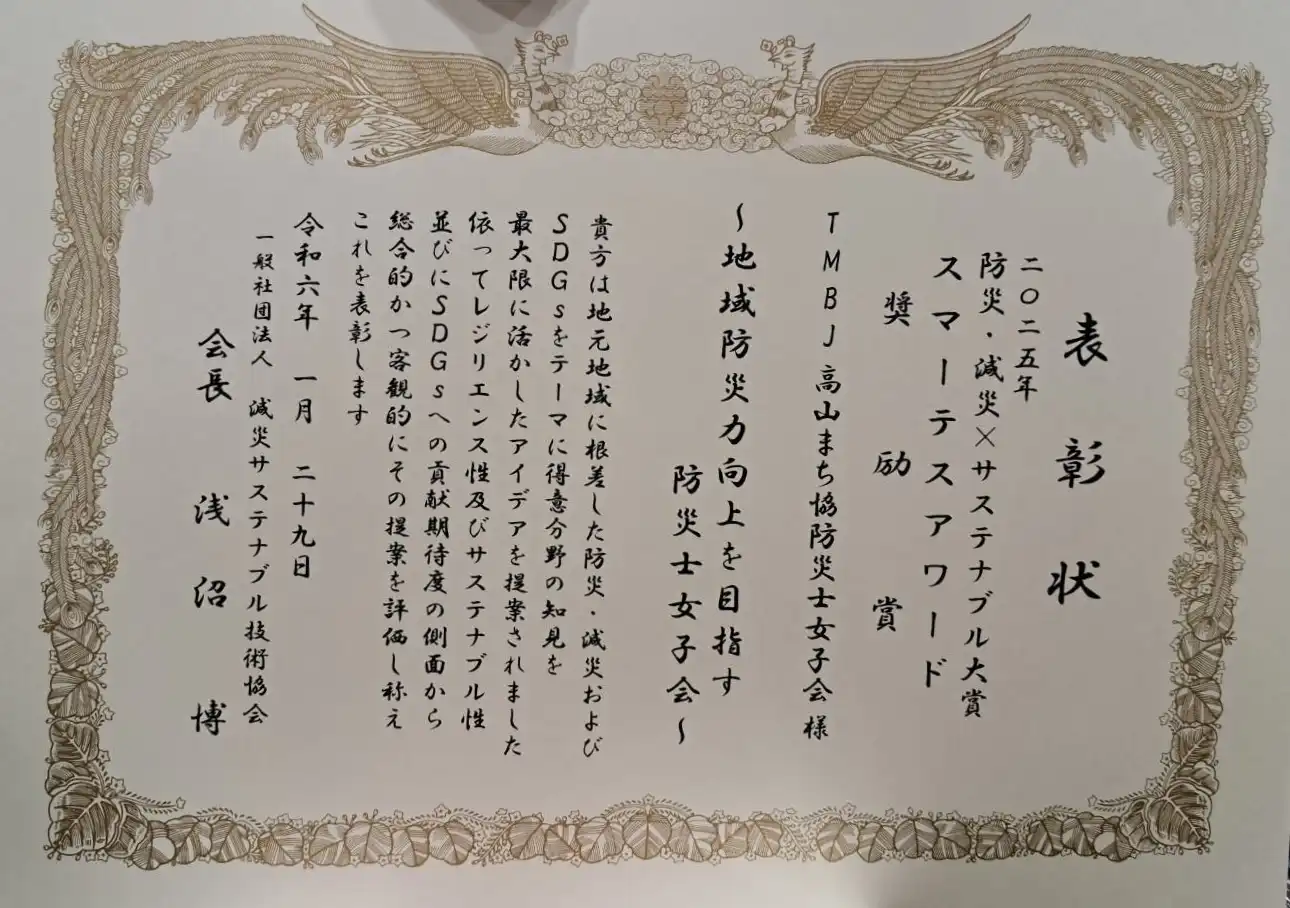 表彰状
二〇二五年
防災・減災×サステナブル大賞
スマーテスアワード
奨励賞
TMBJ高山まち協防災士女子会様
～地域防災力向上を目指す
防災士女子会～
貴方は地元地域に根差した防災・減災および
SDGsをテーマに得意分野の知見を
最大限に活かしたアイデアを提案されました
依ってレジリエンス性及びサステナブル性
並びにSDGsへの貢献期待度の側面から
総合的かつ客観的にその提案を評価し称え
これを表彰します
令和六年 一月 二十九日
一般社団法人 減災サステナブル技術協会
会長 浅沼 博